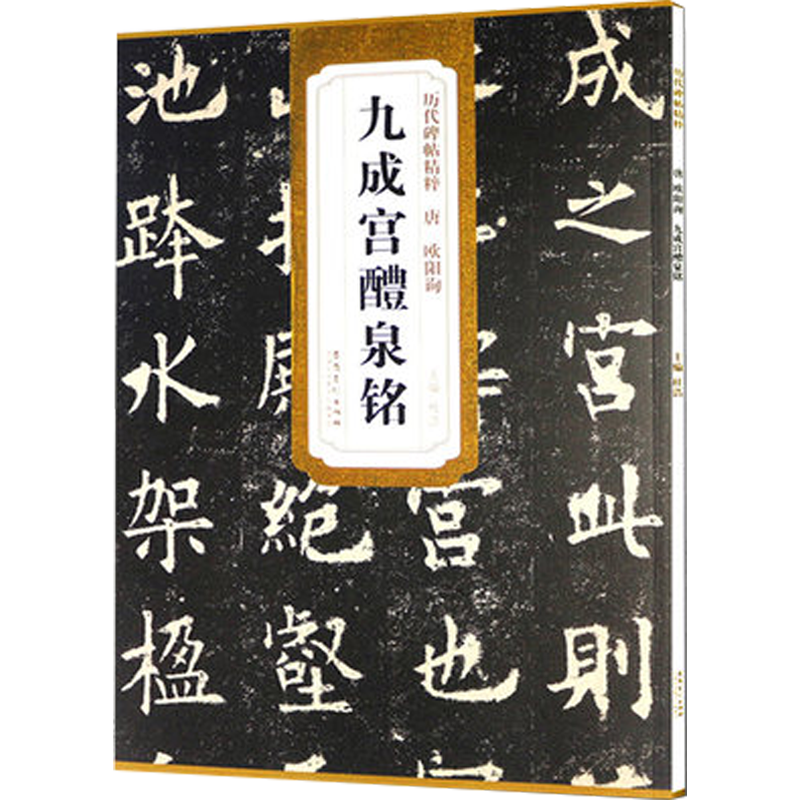 历代碑帖精粹 唐 欧阳询
九成宫醴泉铭
主编 杜浩
成之宮此則
宮也
絕壑
池跨水架楹
历代碑帖精粹 唐 欧阳询 九成宫醴泉铭 主编 杜浩